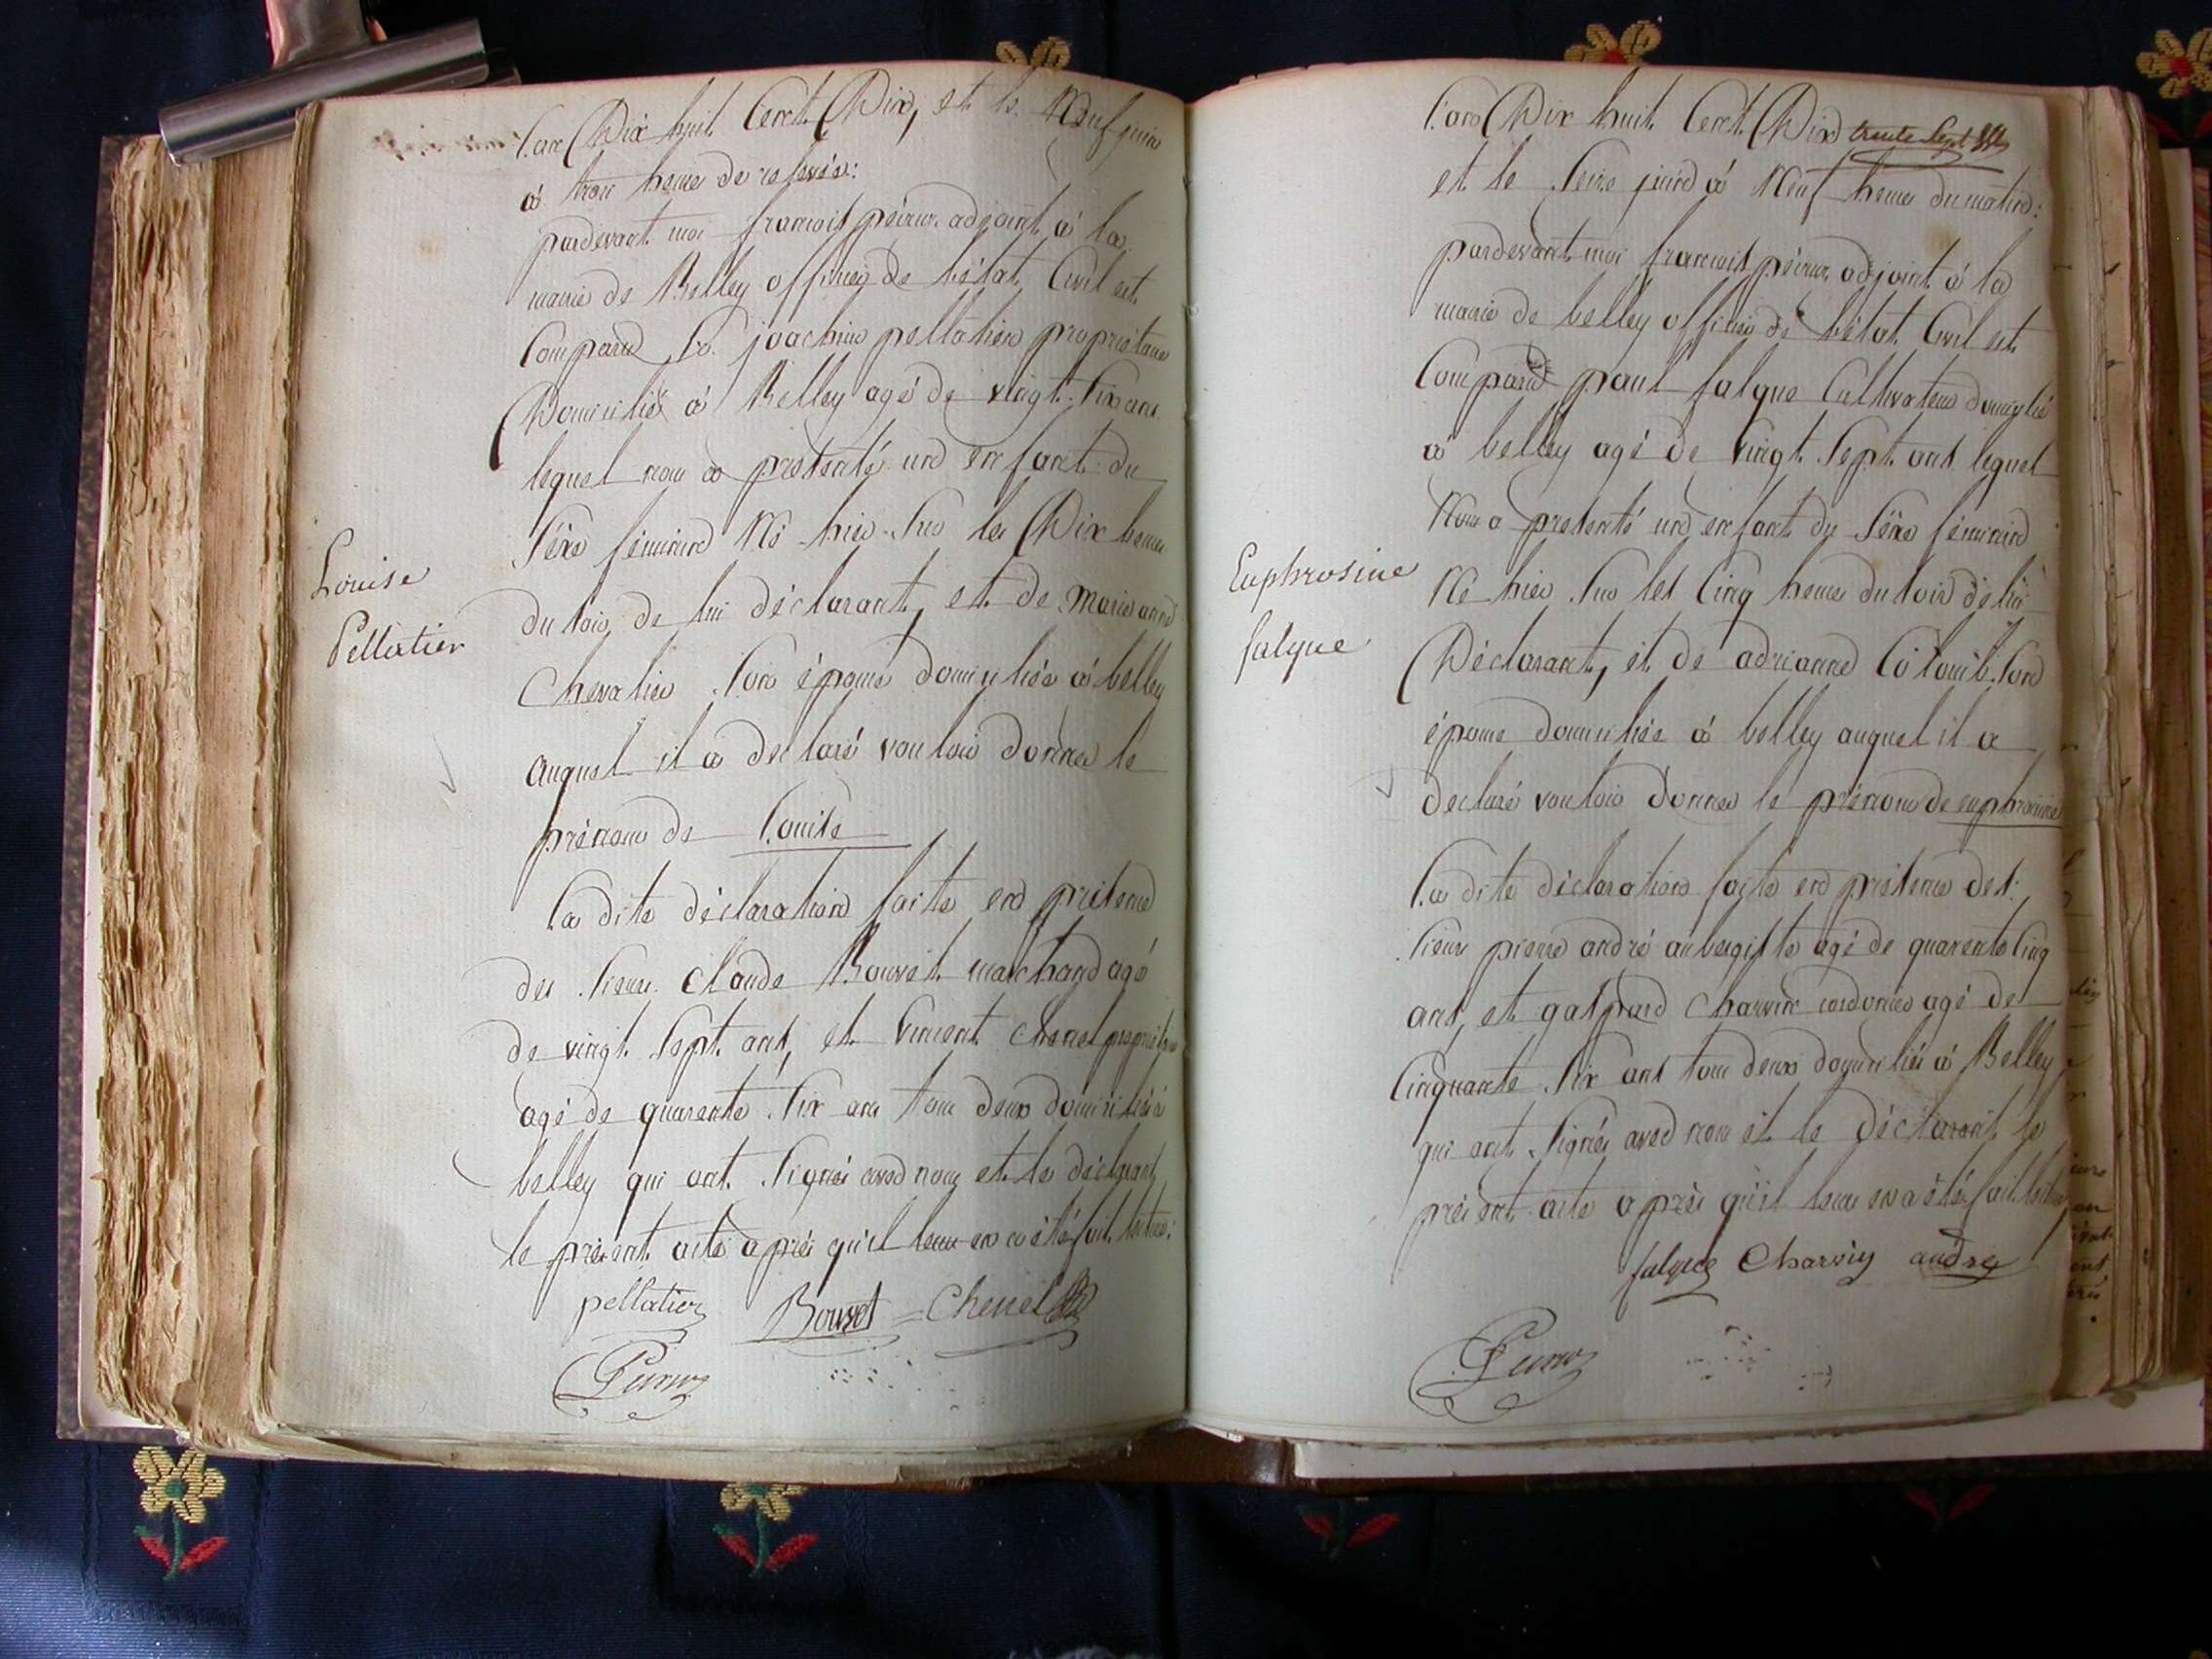 L'an Dix huit Cent Dix, et le Neuf juin
à trois heures de relevée:
pardevant moi francois peÿsieux adjoint à la
mairie de Belley officier de l'état Civil est
Comparu Sr. joachim pellatier propriétaire
Domicilié à Belley agé de vingt Six ans
lequel nous a présenté un enfant du
Séxe féminin Né hier Sur les Dix heures
du soir, de lui déclarant, et de Marie anne
Chevalier Son épouse domiciliée à belley
auquel il a declaré vouloir donner le
prénom de Louise
La dite déclaration faite en présence
des Sieurs Claude Bouvet marchand agé
de vingt Sept ans, et Vincent Chenel propriétaire
agé de quarente Six ans tous deux domiciliés à
belley qui ont Signés avec nous et le déclarant
le présent acte après qu'il leur en a été fait lecture:
pellatier Bouvet = Chenel
Louise
Pellatier
L'an Dix huit Cent Dix trente Sept
et le Seize juin à Neuf heures du matin:
pardevant moi francois adjoint à la
mairie de belley officier de l'état Civil est
Comparu paul falque Cultivateur domicylié
à belley agé de Vingt Sept ans lequel
Nous a présenté un enfant du Séxe féminin
Né hier Sur les Cinq heures du soir de lui
Déclarant, et de adrianne Colomb Son
épouse domiciliée à belley auquel il a
declaré vouloir donner le prénom de euphrosine
La dite déclaration faite en présence des
Sieurs pierre andré aubergiste agé de quarente Cinq
ans, et gaspard Charvin cordonnier agé de
Cinquante Six ans tous deux domiciliés à Belley
qui ont Signés avec nous et le déclarant le
présent acte après qu'il leur en a été fait lecture
falque Charvin andre
Euphrosine
falque